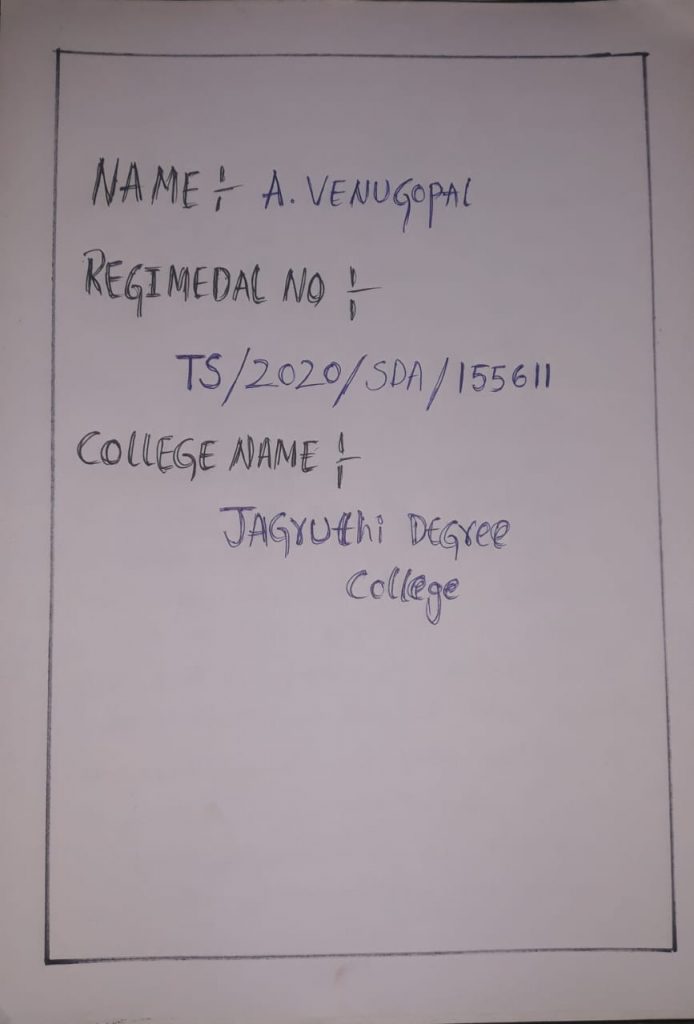 NAME :- A. VENUGOPAL
REGIMEDAL NO :-
TS/2020/SDA/155611
COLLEGE NAME :-
JAGruthi DEGree
College